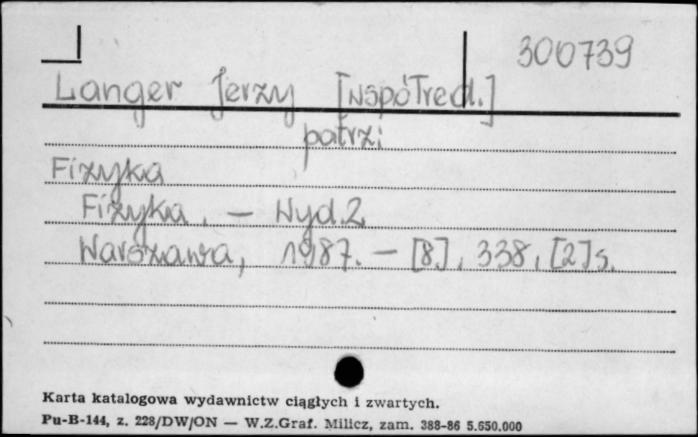 300739
Langer Jerzy [współred.]
patrz:
Fizyka
Fizyka. — Wyd. 2
Warszawa, 1987. — [8], 338, [2] s.
Karta katalogowa wydawnictw ciągłych i zwartych.
Pu-B-144, z. 228/DW/ON — W.Z.Graf. Milicz, zam. 388-86 5.650.000